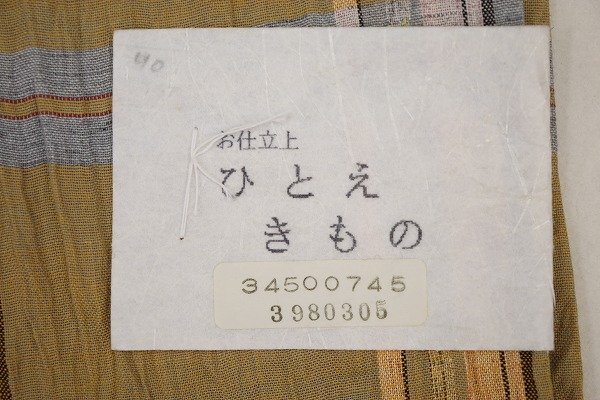 40
お仕立上
ひとえ
きもの
34500745
3980305